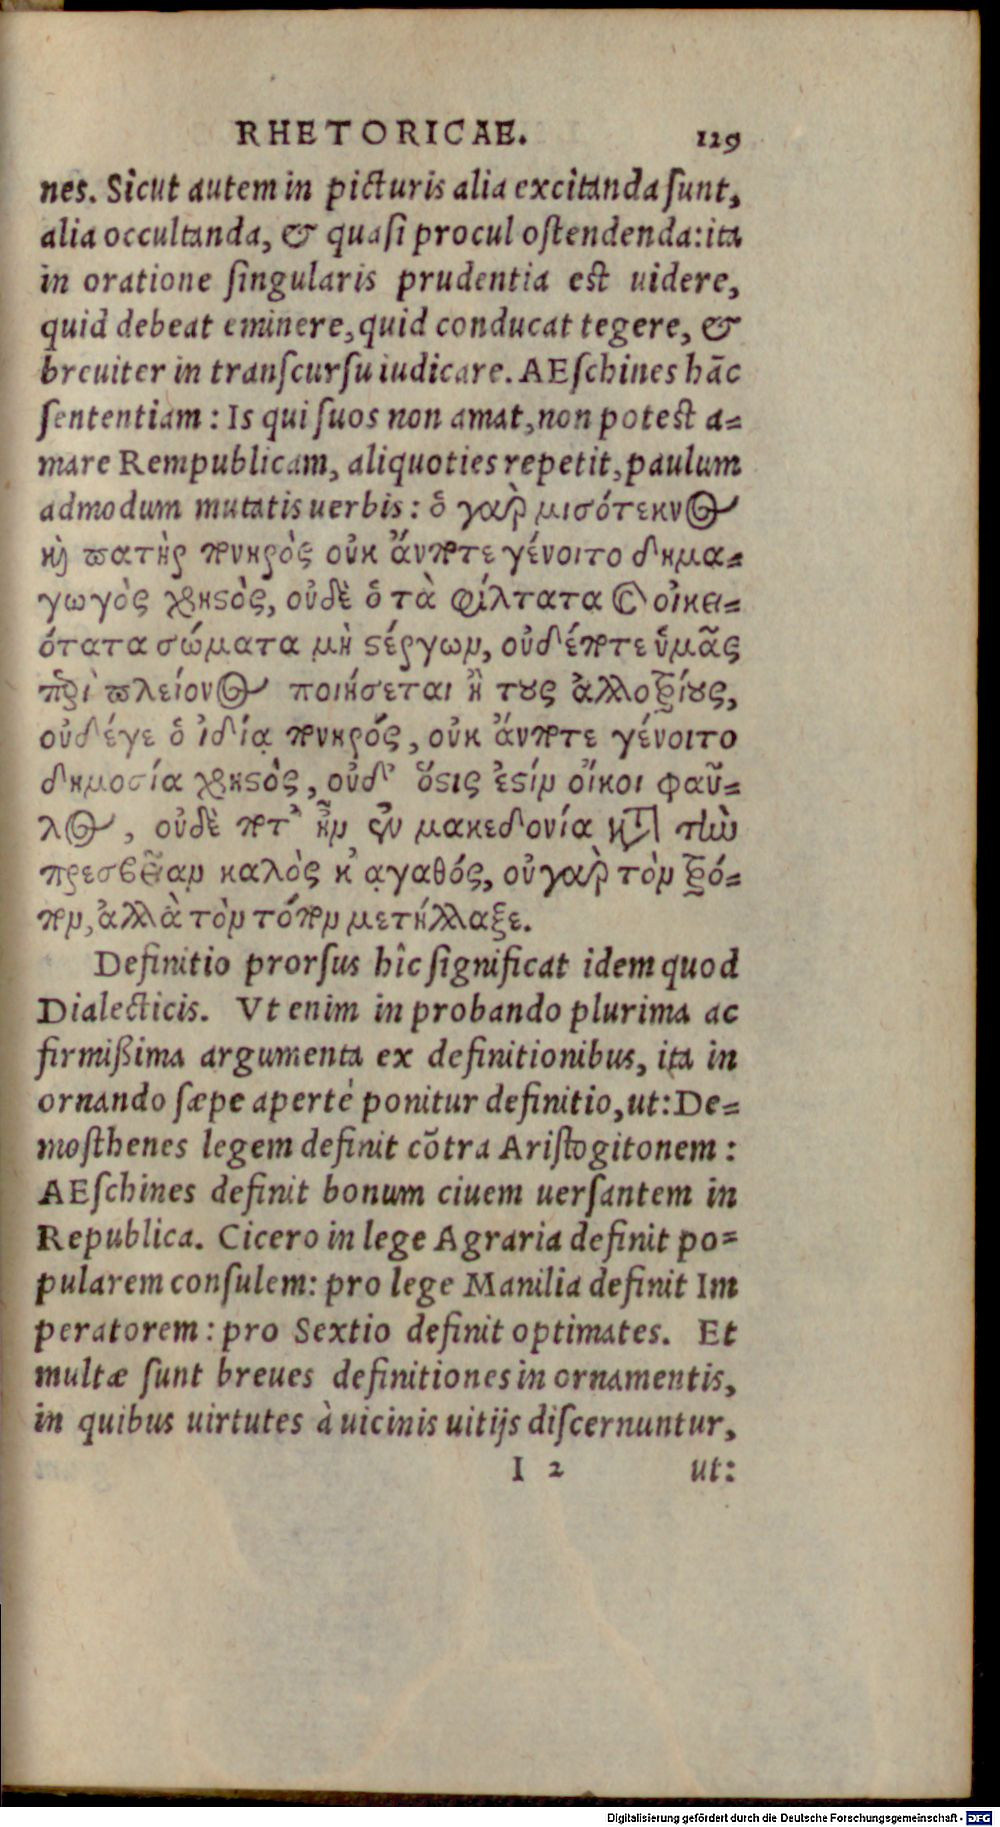 RHETORICAE. 129
nes. Sicut autem in picturis alia excitanda sunt,
alia occultanda, & quasi procul ostendenda: ita
in oratione singularis prudentia est uidere,
quid debeat eminere, quid conducat tegere, &
breuiter in transcursu iudicare. AEschines hāc
sententiam: Is qui suos non amat, non potest a=
mare Rempublicam, aliquoties repetit, paulum
admodum mutatis uerbis: ὁ γαρ μισότεκνος
καὶ πατὴρ πονηρὸς οὐκ ἄν ποτε γένοιτο δημα=
γωγὸς χρηστὸς, οὐδὲ ὁ τὰ φίλτατα καὶ οἰκει=
ότατα σώματα μὴ στέργων, οὐδέποτε ὑμᾶς
περὶ πλείονος ποιήσεται ἢ τοὺς ἀλλοτρίους,
οὐδέγε ὁ ἰδίᾳ πονηρός, οὐκ ἄν ποτε γένοιτο
δημοσία χρηστὸς, οὐδ' ὅστις ἐστίν οἴκοι φαῦ=
λος, οὐδὲ ποτ' ἦν ἐν μακεδονία κατὰ τὴν
πρεσβείαν καλὸς κ' ἀγαθός, οὐ γαρ τὸν τρό=
πον, ἀλλὰ τὸν τόπον μετήλλαξε.
Definitio prorsus hîc significat idem quod
Dialecticis. Vt enim in probando plurima ac
firmißima argumenta ex definitionibus, ita in
ornando sæpe apertè ponitur definitio, ut: De=
mosthenes legem definit cōtra Aristogitonem:
AEschines definit bonum ciuem uersantem in
Republica. Cicero in lege Agraria definit po=
pularem consulem: pro lege Manilia definit Im
peratorem: pro Sextio definit optimates. Et
multæ sunt breues definitiones in ornamentis,
in quibus uirtutes à uicinis uitijs discernuntur,
I 2 ut:
Digitalisierung gefördert durch die Deutsche Forschungsgemeinschaft - DFG